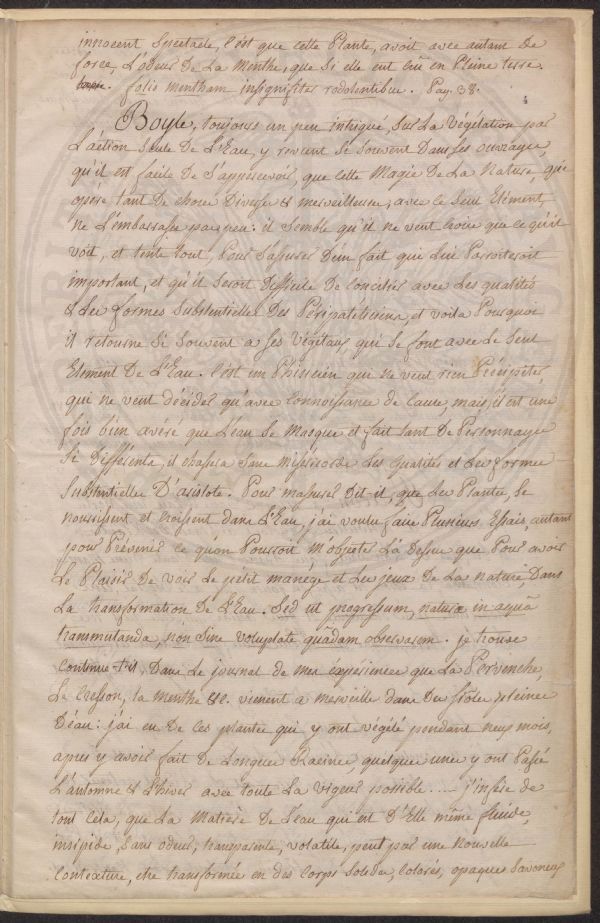 innocent Spectacle, C'est que cette Plante, avoit avec autant de
force, L'odeur de La Menthe, que si elle eut crû en Pleine terre.
folio mentham insigniter redolentibus. Pag. 38.
Boyle, toujours un peu intrigué, sur La Végétation par
L'action Seule de L'Eau, y revient si souvent dans ses ouvrages,
qu'il est facile de s'appercevoir, que cette Magie de La Nature qui
opére tant de choses Diverses & merveilleuses, avec ce seul Elément,
ne L'embarrasse pas peu: il semble qu'il ne veut croire que ce qu'il
voit, et tente tout, Pour s'assurer d'un fait qui Lui Paroiteroit
important, et qu'il seroit difficile de concilier avec Les qualités
& Les formes Substantielles Des Péripatéticiens, et voila Pourquoi
il retourne si souvent a ses Végétaux, qui se font avec le seul
Elément De L'Eau. C'est un Phisicien qui ne veut rien Précipiter
qui ne veut décider qu'avec connoissance de cause, mais s'il est une
fois bien averé que L'eau se Masque et fait tant de Personnages
si différents, il chassera sans miséricorde Les Qualités et Les formes
Substantielles D'aristote. Pour m'assurer dit-il, que Les Plantes se
nourrissent et croissent dans L'Eau, j'ai voulu faire Plusieurs Essais, autant
pour Prévenir ce qu'on Pourroit m'objecter La dessus que Pour avoir
Le Plaisir De voir Le petit manége et Les jeux de La nature Dans
La transformation de L'Eau. Sed ut progressum naturæ in aquâ
transmutanda, non sine voluptate quâdam observarem. je trouve
continue-t-il, Dans Le journal de mes expériences que La Pervenche,
Le Cresson, La menthe &c. vienent a merveille dans Des fioles pleines
D'eau: j'ai eu de ces plantes qui y ont végété pendant neuf mois,
après y avoir fait de Longues Racines, quelques unes y ont Passé
L'automne & L'hiver avec toute La vigueur possible .... j'infère de
tout cela, que La Matière De L'eau qui est d'Elle même fluide,
insipide, sans odeur, transparente, volatile, peut par une Nouvelle
Contexture, etre transformée en des Corps Solides, Colorés, opaques Savoureux